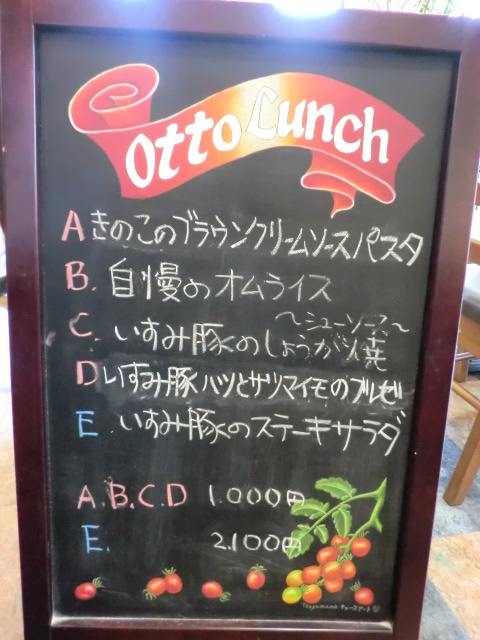 Otto Lunch
A きのこのブラウンクリームソースパスタ
B. 自慢のオムライス
～シューソース～
C. いすみ豚のしょうが焼
D いすみ豚ハツとサツマイモのブルゼ
E. いすみ豚のステーキサラダ
A.B.C.D 1.000円
E. 2.100円
チョークアート